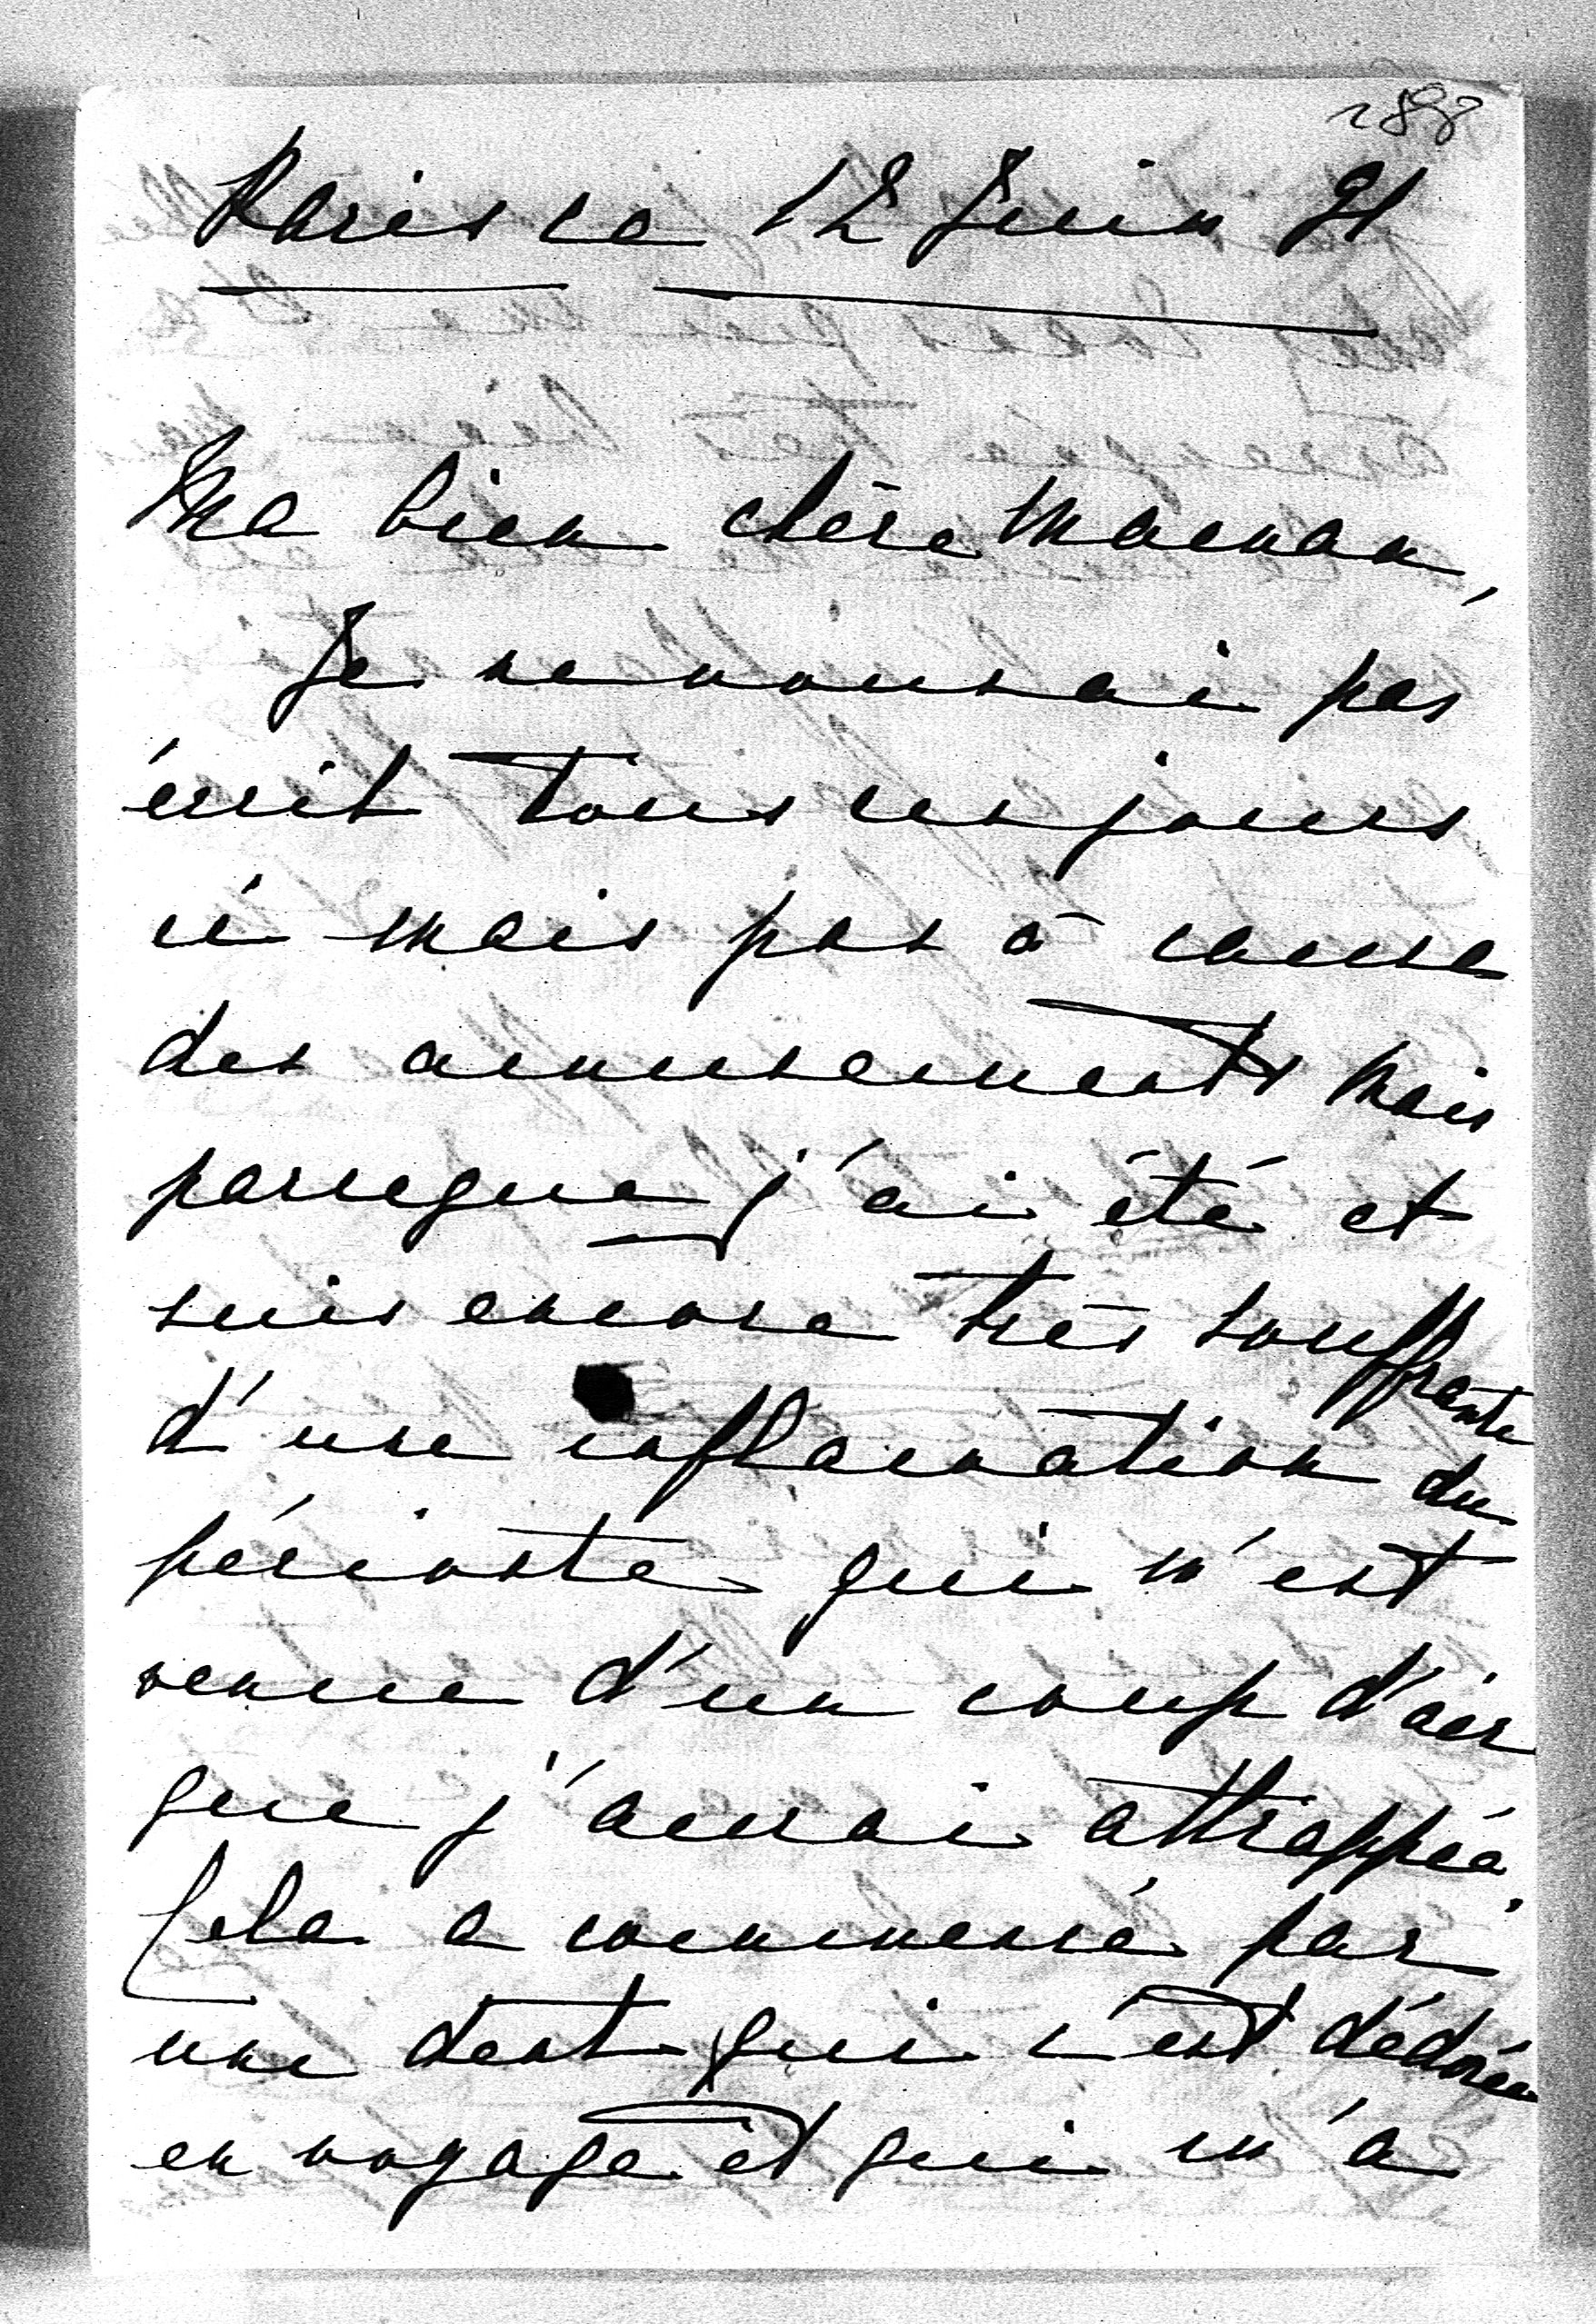 288
Paris ce 12 Juin 91
Ma bien chère Maman,
Je ne vous ai pas
écrit tous ces jours
ci mais pas à cause
des amusements mais
parceque j'ai été et
suis encore très souffrante
d'une inflamation du
périoste qui m'est
venue d'un coup d'air
que j'aurai attrappée.
Cela a commencé par
une dent qui s'est
en voyage et qui m'a